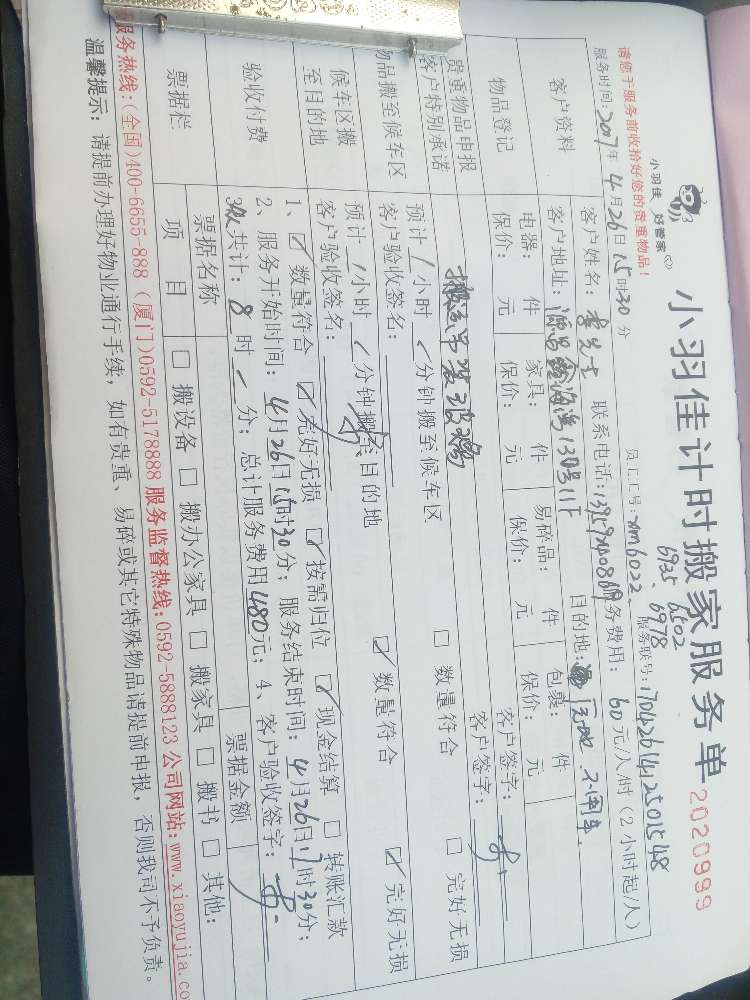 小羽佳 好管家
小羽佳计时搬家服务单
2020999
6935 6502
6978
请您于服务前收拾好您的贵重物品!
员工工号: xm6022、
服务联号: 1704261412501548
服务时间: 2017年 4月26日 15时30分
服务费用: 60元/人/时(2小时起/人)
客户资料
客户姓名: 李先士 联系电话:
客户地址: 源昌鑫海湾130号11F 目的地:
物品登记
电器: 件 家具: 件 易碎品: 件 包裹: 件
保价: 元 保价: 元 保价: 元 保价: 元
贵重物品申报
客户特别承诺
客户签字:
客户签字:
物品搬至候车区
预计 1小时 分钟搬至候车区 □ 数量符合 □ 完好无损
客户验收签名:
候车区搬至目的地
预计 1小时 分钟搬至目的地 ☑ 数量符合 ☑ 完好无损
客户验收签名:
验收付费
1、☑ 数量符合 ☑ 完好无损 ☑ 按需归位 ☑ 现金结算 □ 转账汇款
2、服务开始时间: 4月26日15时30分; 服务结束时间: 4月26日17时30分;
3、共计: 8时 分; 总计服务费用480元; 4、客户验收签字:
票据栏
票据名称 票据金额
项 目 □ 搬设备 □ 搬办公家具 □ 搬家具 □ 搬书 □ 其他:
服务热线:(全国)400-6655-888 (厦门)0592-5178888 服务监督热线:0592-5888123 公司网站:www.xiaoyujia.co
温馨提示: 请提前办理好物业通行手续, 如有贵重、易碎或其它特殊物品请提前申报, 否则我司不予负责。